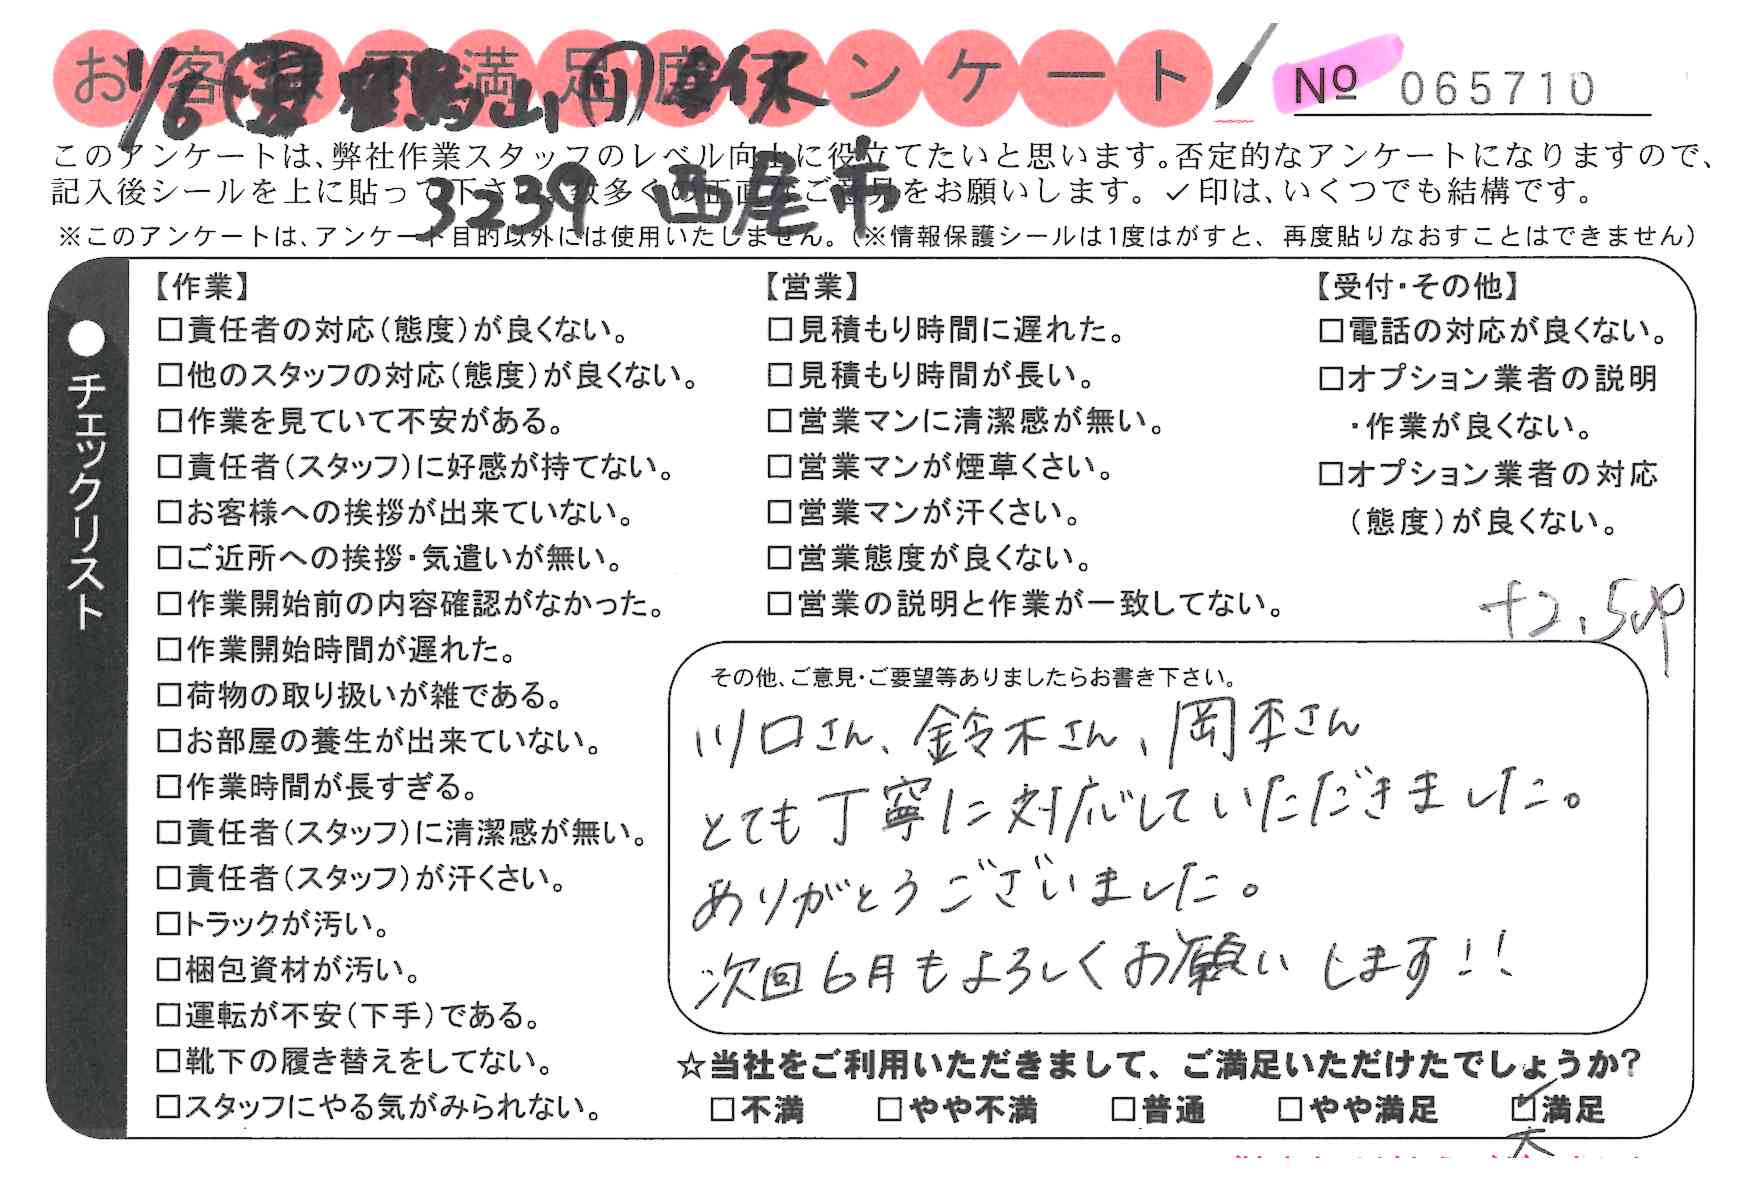 お客様不満足度アンケート
No 065710
1/6
3239 西尾市
このアンケートは、弊社作業スタッフのレベル向上に役立てたいと思います。否定的なアンケートになりますので、
記入後シールを上に貼って下さい。数多くの正直なご意見をお願いします。✓印は、いくつでも結構です。
※このアンケートは、アンケート目的以外には使用いたしません。(※情報保護シールは1度はがすと、再度貼りなおすことはできません)
●チェックリスト
【作業】
□責任者の対応(態度)が良くない。
□他のスタッフの対応(態度)が良くない。
□作業を見ていて不安がある。
□責任者(スタッフ)に好感が持てない。
□お客様への挨拶が出来ていない。
□ご近所への挨拶・気遣いが無い。
□作業開始前の内容確認がなかった。
□作業開始時間が遅れた。
□荷物の取り扱いが雑である。
□お部屋の養生が出来ていない。
□作業時間が長すぎる。
□責任者(スタッフ)に清潔感が無い。
□責任者(スタッフ)が汗くさい。
□トラックが汚い。
□梱包資材が汚い。
□運転が不安(下手)である。
□靴下の履き替えをしてない。
□スタッフにやる気がみられない。
【営業】
□見積もり時間に遅れた。
□見積もり時間が長い。
□営業マンに清潔感が無い。
□営業マンが煙草くさい。
□営業マンが汗くさい。
□営業態度が良くない。
□営業の説明と作業が一致してない。
【受付・その他】
□電話の対応が良くない。
□オプション業者の説明
・作業が良くない。
□オプション業者の対応
(態度)が良くない。
+2.5P
その他、ご意見・ご要望等ありましたらお書き下さい。
川口さん、鈴木さん、岡本さん
とても丁寧に対応していただきました。
ありがとうございました。
次回6月もよろしくお願いします!!
☆当社をご利用いただきまして、ご満足いただけたでしょうか?
□不満 □やや不満 □普通 □やや満足 ☑満足
大